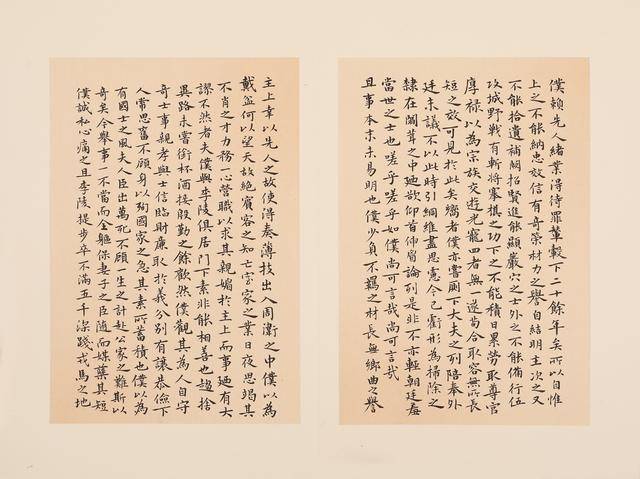 僕賴先人緒業得待罪輦轂下二十餘年矣所以自惟
上之不能納忠效信有奇策材力之譽自結明主次之又
不能拾遺補闕招賢進能顯巖穴之士外之不能備行伍
攻城野戰有斬將搴旗之功下之不能積日累勞取尊官
厚祿以為宗族交遊光寵四者無一遂苟合取容無所長
短之效可見於此矣嚮者僕亦嘗廁下大夫之列陪奉外
廷末議不以此時引綱維盡思慮今已虧形為掃除之
隸在闒茸之中廼欲仰首伸眉論列是非不亦輕朝廷羞
當世之士也嗟乎嗟乎如僕尚何言哉尚何言哉
且事本末未易明也僕少負不羈之材長無鄉曲之譽
主上幸以先人之故使得奏薄技出入周衛之中僕以為
戴盆何以望天故絕賓客之知亡室家之業日夜思竭其
不肖之才力務一心營職以求其親媚於主上而事廼有大
謬不然者夫僕與李陵俱居門下素非能相善也趨捨
異路未嘗銜杯酒接殷勤之餘歡然僕觀其為人自守
奇士事親孝與士信臨財廉取於義分別有讓恭儉下
人常思奮不顧身以殉國家之急其素所蓄積也僕以為
有國士之風夫人臣出萬死不顧一生之計赴公家之難斯以
奇矣今舉事一不當而全軀保妻子之臣隨而媒蘖其短
僕誠私心痛之且李陵提步卒不滿五千深踐戎馬之地